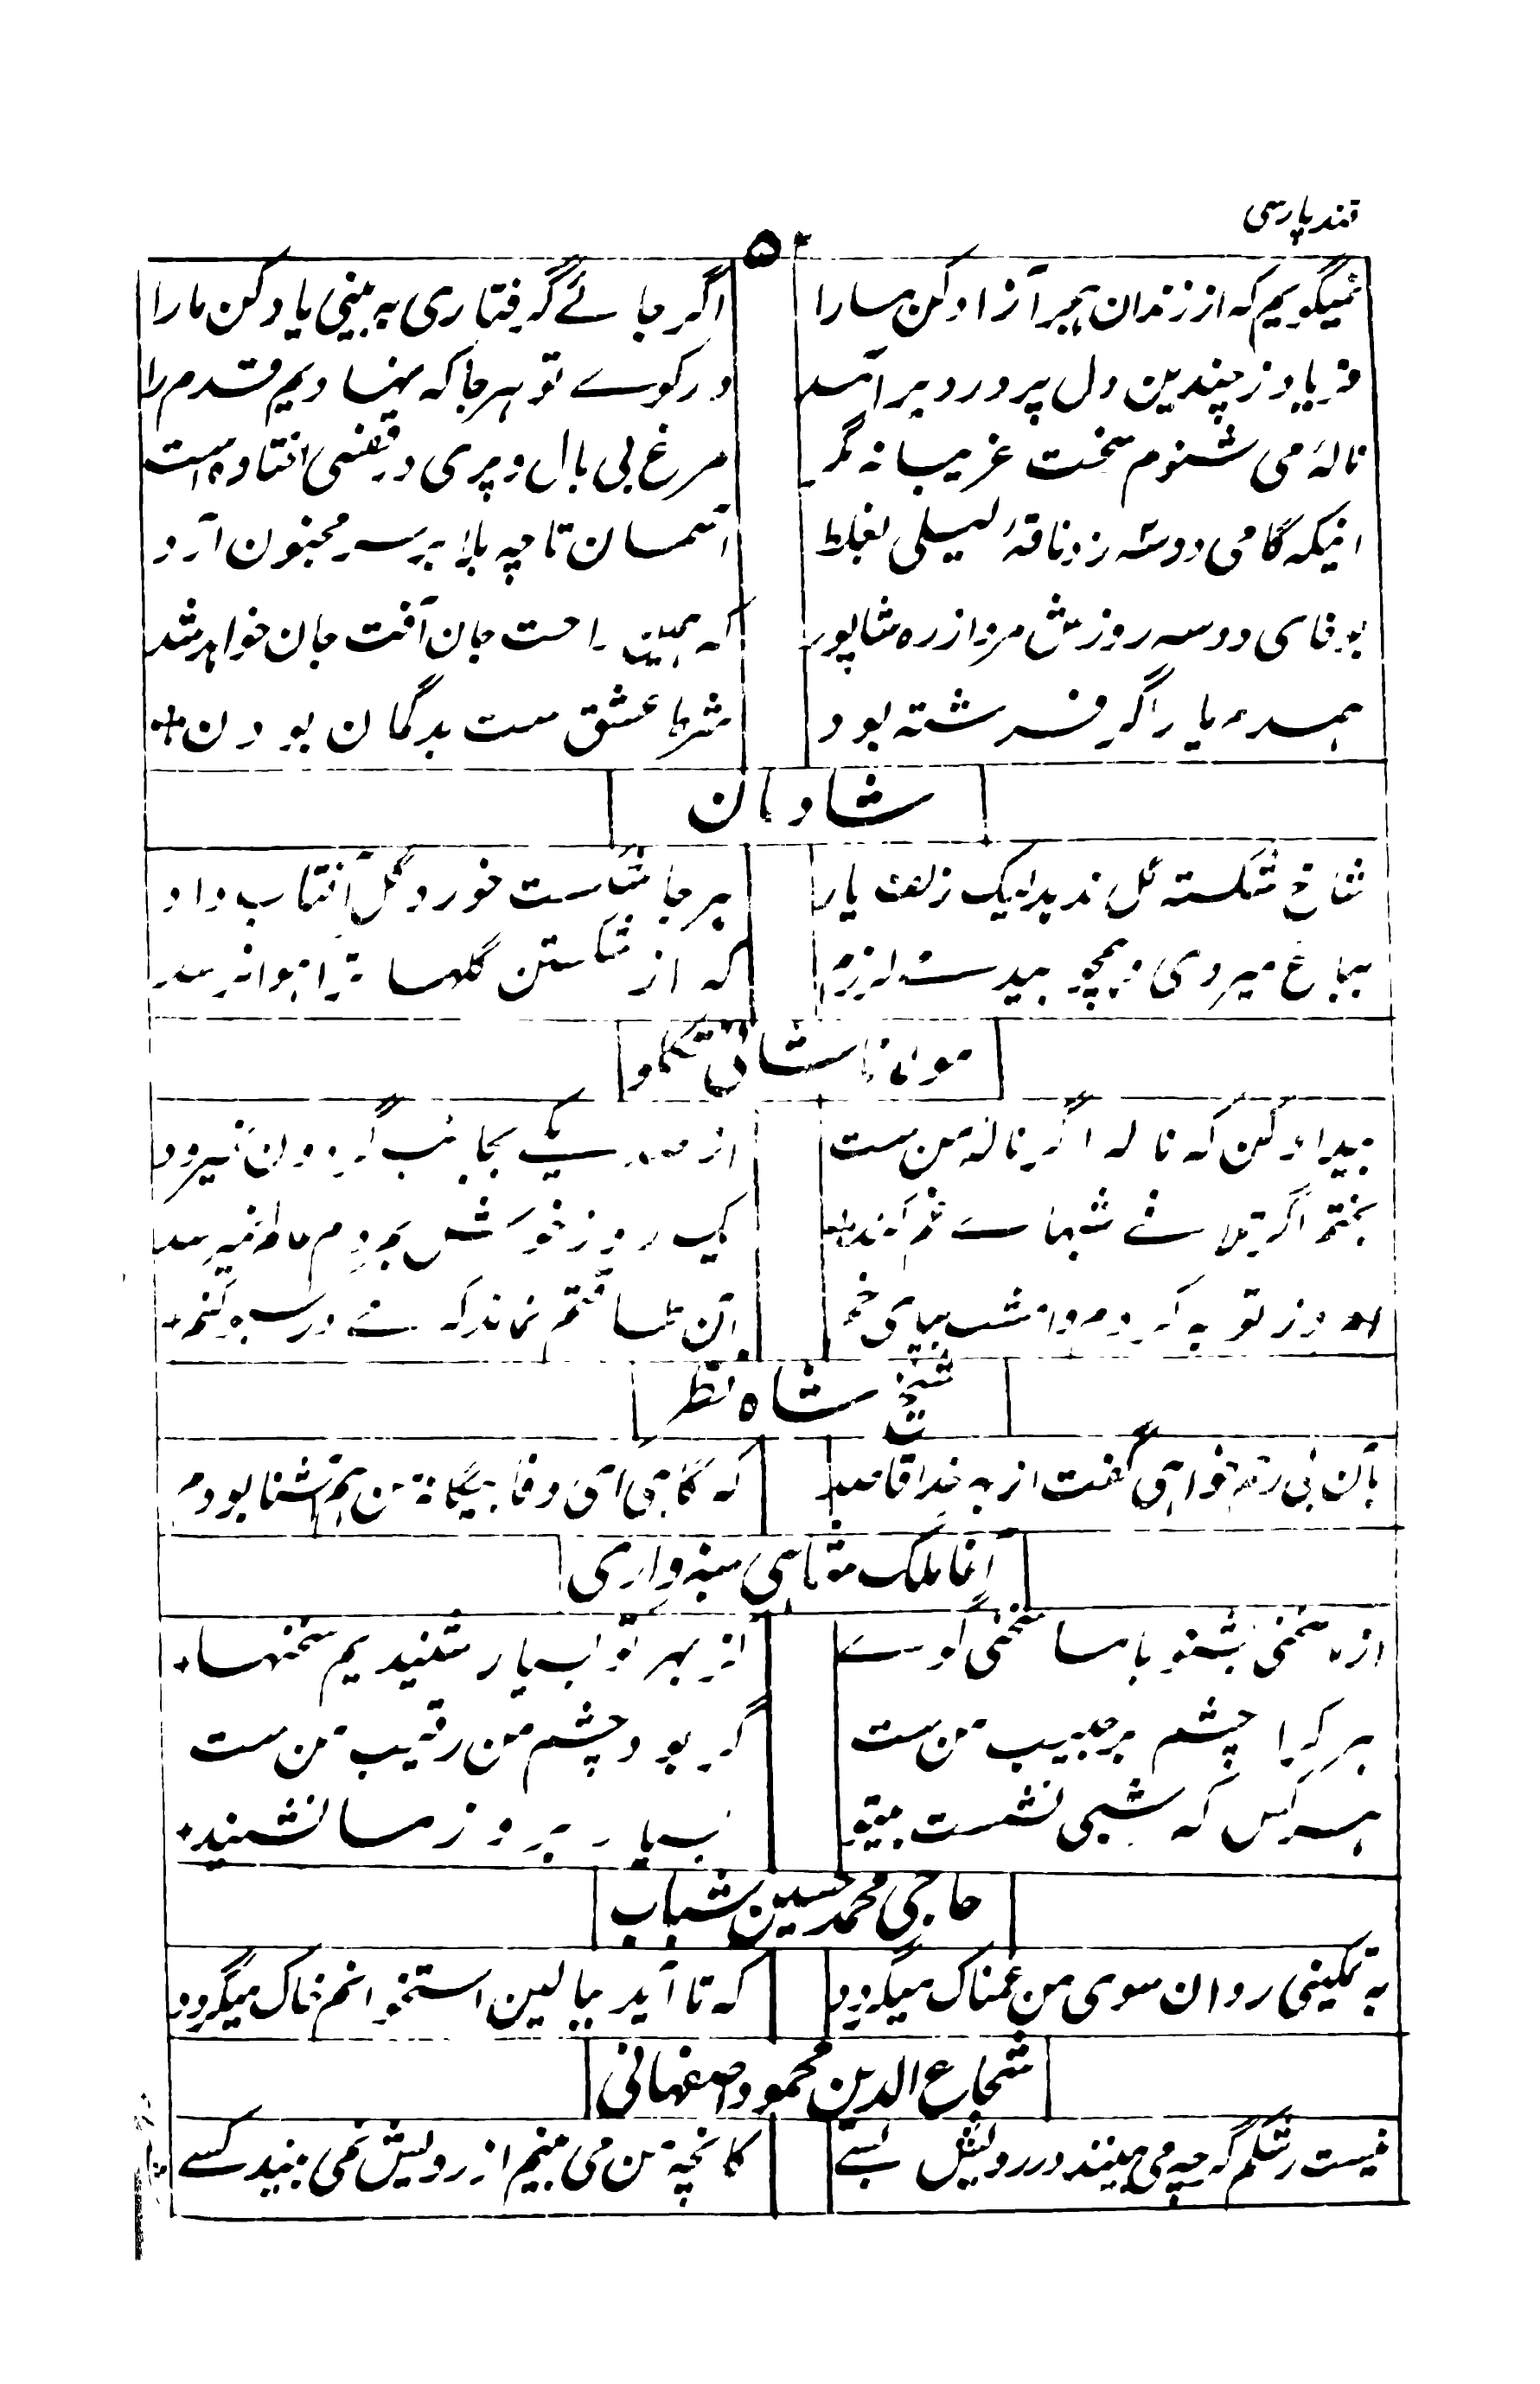 قند پارسی
۵۲
نمیگویم که از زندان هجر آزاد کن ما را اگر جائے گرفتاری به بینی یاد کن ما را
فریاد ز چندین دل پر درد برآمد در کوے تو هرجا که نهادیم قدم را
نالهٔ می شنوم سخت غریبانه مگر مرغ بی بال و پری در قفسی افتاده است
اینکه گامی دو سه زد ناقهٔ لیلی بغلط آسمان تا چه بلا بر سر مجنون آرد
بوفای دو سه روزش مرو از ره شاپور که همین راحت جان آفت جان خواهد شد
همدم یار اگر فرشته بود شرط عشق ست بدگمان بودن
شادمان
شاخ شکسته گل ندهد لیک زلف یار هر جا شکست خورد گل آفتاب داد
بباغ میروی و همچو بید میلرزم که از شکستن گلها ترا هوا نرسد
مولانا شانی تکلو
بیداد کن که ناله اگر نالهٔ من ست از صد یکے بجانب گردون نمیرود
بختم اگر تلافی شبهاے غم کند یک روز خوش بمردم عالم نمیرسد
روز توبه کردم و امشب بپای خم نماند که مے در سبو کنم
شیخ شاه نظر
بآن بی رحم خواهی گفت از بهر خدا قاصد که گاهی ای وفا بیگانه من هم آشنا بودم
آغا ملک شاهی سبزواری
از ما سخنی بشنو با ما سخنی گوے از بهر تو بسیار شنیدیم سخنها
هر کرا چشم بر حبیب من ست گر بود چشم من رقیب من ست
هر کس که شبی نشست بیتو بسیار بروز ما نشیند
حاجی محمد حسین شباب
به تمکینی روان سوی من غمناک میگردد که تا آید ببالین استخوانم خاک میگردد
شجاع الدین محمود اصفهانی
نیست رشکم گرچه می بینند در رویش بسے کانچه من می بینم از رویش نمی بیند کسے